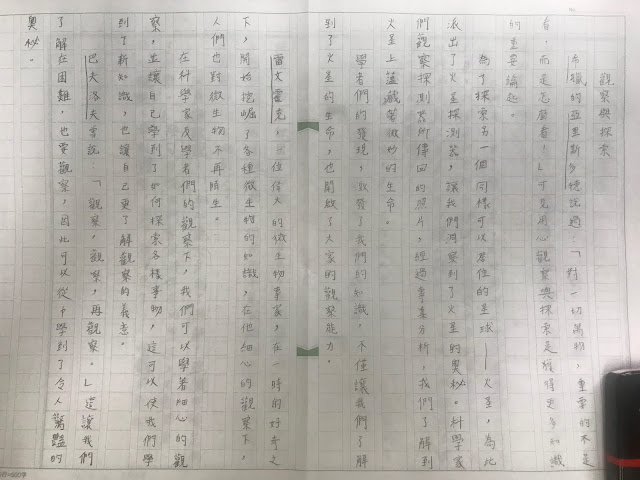 觀察與探索
希臘的亞里斯多德說過：「對一切萬物，重要的不是
看，而是怎麼看！」可見用心觀察與探索是獲得更多知識
的重要鑰起。
為了探索另一個同樣可以居住的星球——火星，為此
派出了火星探測器，讓我們洞察到了火星的奧秘。科學家
們觀察探測器所傳回的照片，經過專業分析，我們了解到
火星上蘊藏著微妙的生命。
學者們的發現，啟發了我們的知識，不僅讓我們了解
到了火星的生命，也開啟了大家的觀察能力。
雷文霍克，一位偉大的微生物專家，在一時的好奇之
下，開始挖崛了各種微生物的知識，在他細心的觀察下，
人們也對微生物不再陌生。
在科學家及學者們的觀察下，我們可以學著細心的觀
察，並讓自己學到了如何探索各樣事物，這可以使我們學
到了新知識，也讓自己更了解觀察的義意。
巴夫洛夫曾說：「觀察，觀察，再觀察。」這讓我們
了解在困難，也要觀察，因此可以從中學到了令人驚豔的
奧秘。